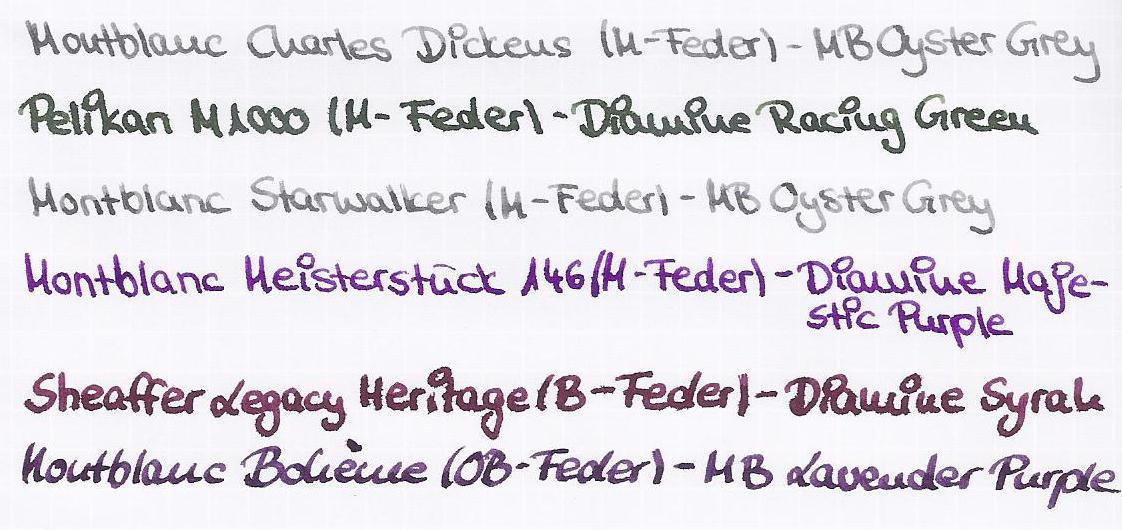 Montblanc Charles Dickens (M-Feder) - MB Oyster Grey
Pelikan M1000 (M-Feder) - Diamine Racing Green
Montblanc Starwalker (M-Feder) - MB Oyster Grey
Montblanc Meisterstück 146 (M-Feder) - Diamine Maje-
stic Purple
Sheaffer Legacy Heritage (B-Feder) - Diamine Syrah
Montblanc Bohème (OB-Feder) - MB Lavender Purple